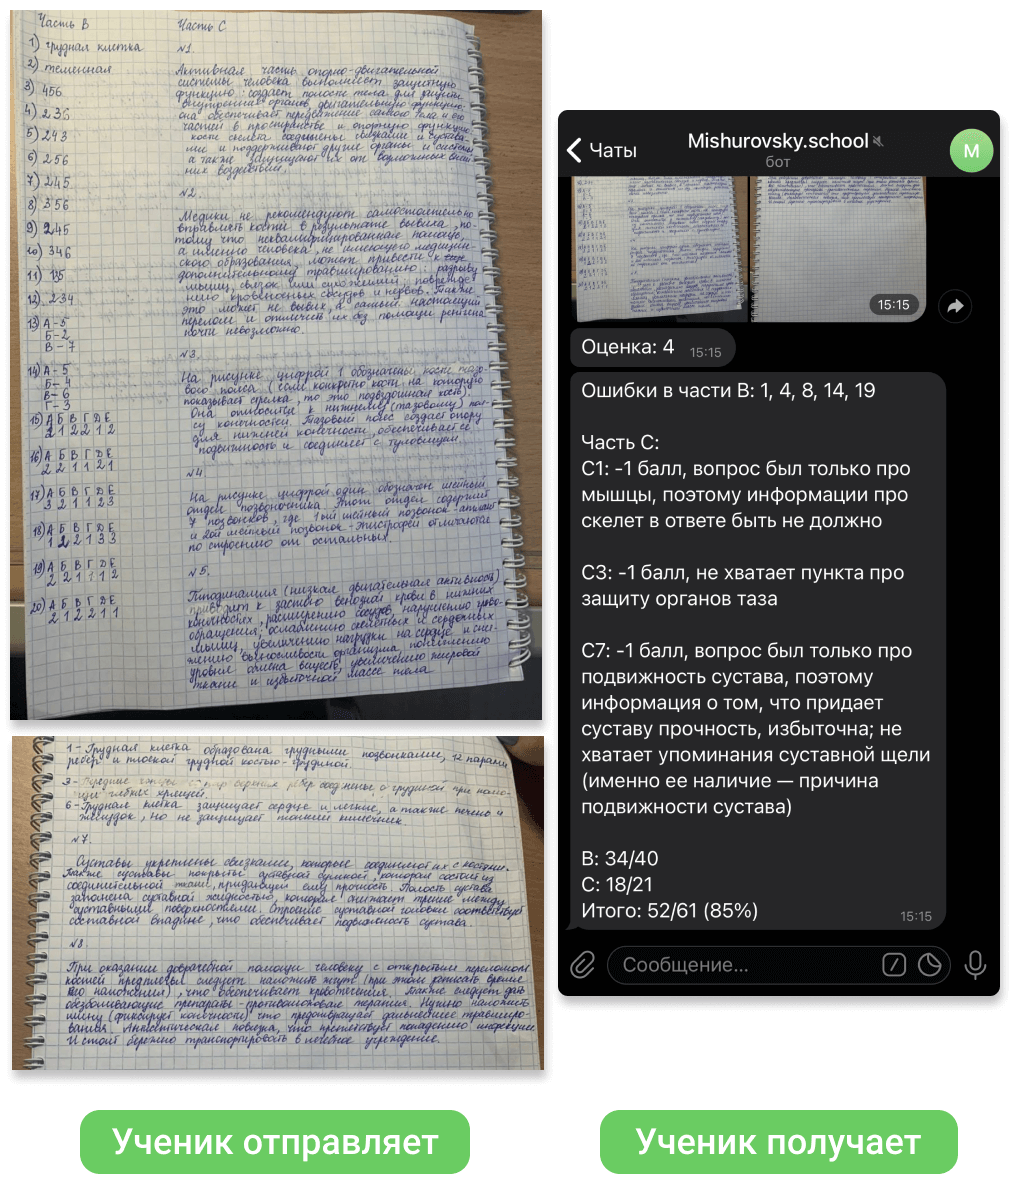 Часть В
1) грудная клетка
2) теменная
3) 456
4) 236
5) 243
6) 256
7) 245
8) 356
9) 245
10) 346
11) 135
12) 234
13) А-5
Б-2
В-7
14) А-5
Б-4
В-6
Г-3
15) А Б В Г Д Е
2 1 2 2 1 2
16) А Б В Г Д Е
2 2 1 1 2 1
17) А Б В Г Д Е
3 2 1 1 2 3
18) А Б В Г Д Е
1 2 2 1 3 3
19) А Б В Г Д Е
2 2 1 1 1 2
20) А Б В Г Д Е
2 1 2 2 1 1
Часть С
№1.
Активная часть опорно-двигательной
системы человека выполняет защитную
функцию: создает полости тела для защиты
внутренних органов, двигательную функцию:
она обеспечивает передвижение самого тела и его
частей в пространстве и опорную функцию:
кости скелета соединены связками и сустава-
ми и поддерживают другие органы и системы
а также защищают их от возможных внеш
них воздействий.
№2.
Медики не рекомендуют самостоятельно
вправлять кости в результате вывиха, по-
тому что неквалифицированная помощь,
а именно человека не имеющего медицин-
ского образования, может привести к
дополнительному травмированию: разрыву
мышц, связок или сухожилий, поврежде-
нию кровеносных сосудов и нервов. Также
это может не вывих, а самый настоящий
перелом и отличить их без помощи рентгена
почти невозможно.
№3.
На рисунке цифрой 1 обозначены кости тазо-
вого пояса (если конкретно кости на которую
показывает стрелка, то это подвздошная кость).
Она относится к нижнему (тазовому) поя-
су конечностей. Тазовый пояс создает опору
для нижней конечности, обеспечивает её
подвижность и соединяет с туловищем.
№4
На рисунке цифрой один обозначен шейный
отдел позвоночника. Этот отдел содержит
7 позвонков, где 1ый шейный позвонок - атлант
и 2ой шейный позвонок - эпистрофей отличаются
по строению от остальных.
№5.
Гиподинамия (низкая двигательная активность)
приводит к застою венозной крови в нижних
конечностях, расширению сосудов, нарушению крово-
обращения; ослаблению скелетных и сердечных
мышц, увеличению нагрузки на сердце и сни-
жению выносливости организма, понижению
уровня обмена веществ, увеличению жировой
ткани и избыточной массе тела
1 - Грудная клетка образована грудными позвонками, 12 парами
ребер и плоской грудной костью-грудиной.
2 - Передние концы ребер соединены с грудиной при помо-
щи гибких хрящей.
6 - Грудная клетка защищает сердце и легкие, а также печень и
желудок, но не защищает тонкий кишечник
№7.
Суставы укреплены связками, которые соединяют их с костями.
Также суставы покрыты суставной сумкой, которая состоит из
соединительной ткани, придающей ему прочность. Полость сустава
заполнена суставной жидкостью, которая снижает трение между
суставными поверхностями. Строение суставной головки соответствует
суставной впадине, что обеспечивает подвижность сустава.
№8.
При оказании доврачебной помощи человеку с открытым переломом
костей предплечья следует наложить жгут (при этом записать время
его наложения), что обеспечивает кровотечения. Также следует дать
обезболивающие препараты - противошоковая терапия. Нужно наложить
шину (фиксирует конечности) что предотвращает дальнейшее травмиро-
вания. Антисептическая повязка, что препятствует попаданию инфекции
И стоит бережно транспортировать в лечебное учреждение.
Чаты
Mishurovsky.school
бот
М
15:15
Оценка: 4 15:15
Ошибки в части В: 1, 4, 8, 14, 19
Часть С:
С1: -1 балл, вопрос был только про
мышцы, поэтому информации про
скелет в ответе быть не должно
С3: -1 балл, не хватает пункта про
защиту органов таза
С7: -1 балл, вопрос был только про
подвижность сустава, поэтому
информация о том, что придает
суставу прочность, избыточна; не
хватает упоминания суставной щели
(именно ее наличие — причина
подвижности сустава)
В: 34/40
С: 18/21
Итого: 52/61 (85%)
15:15
Сообщение...
Ученик отправляет
Ученик получает